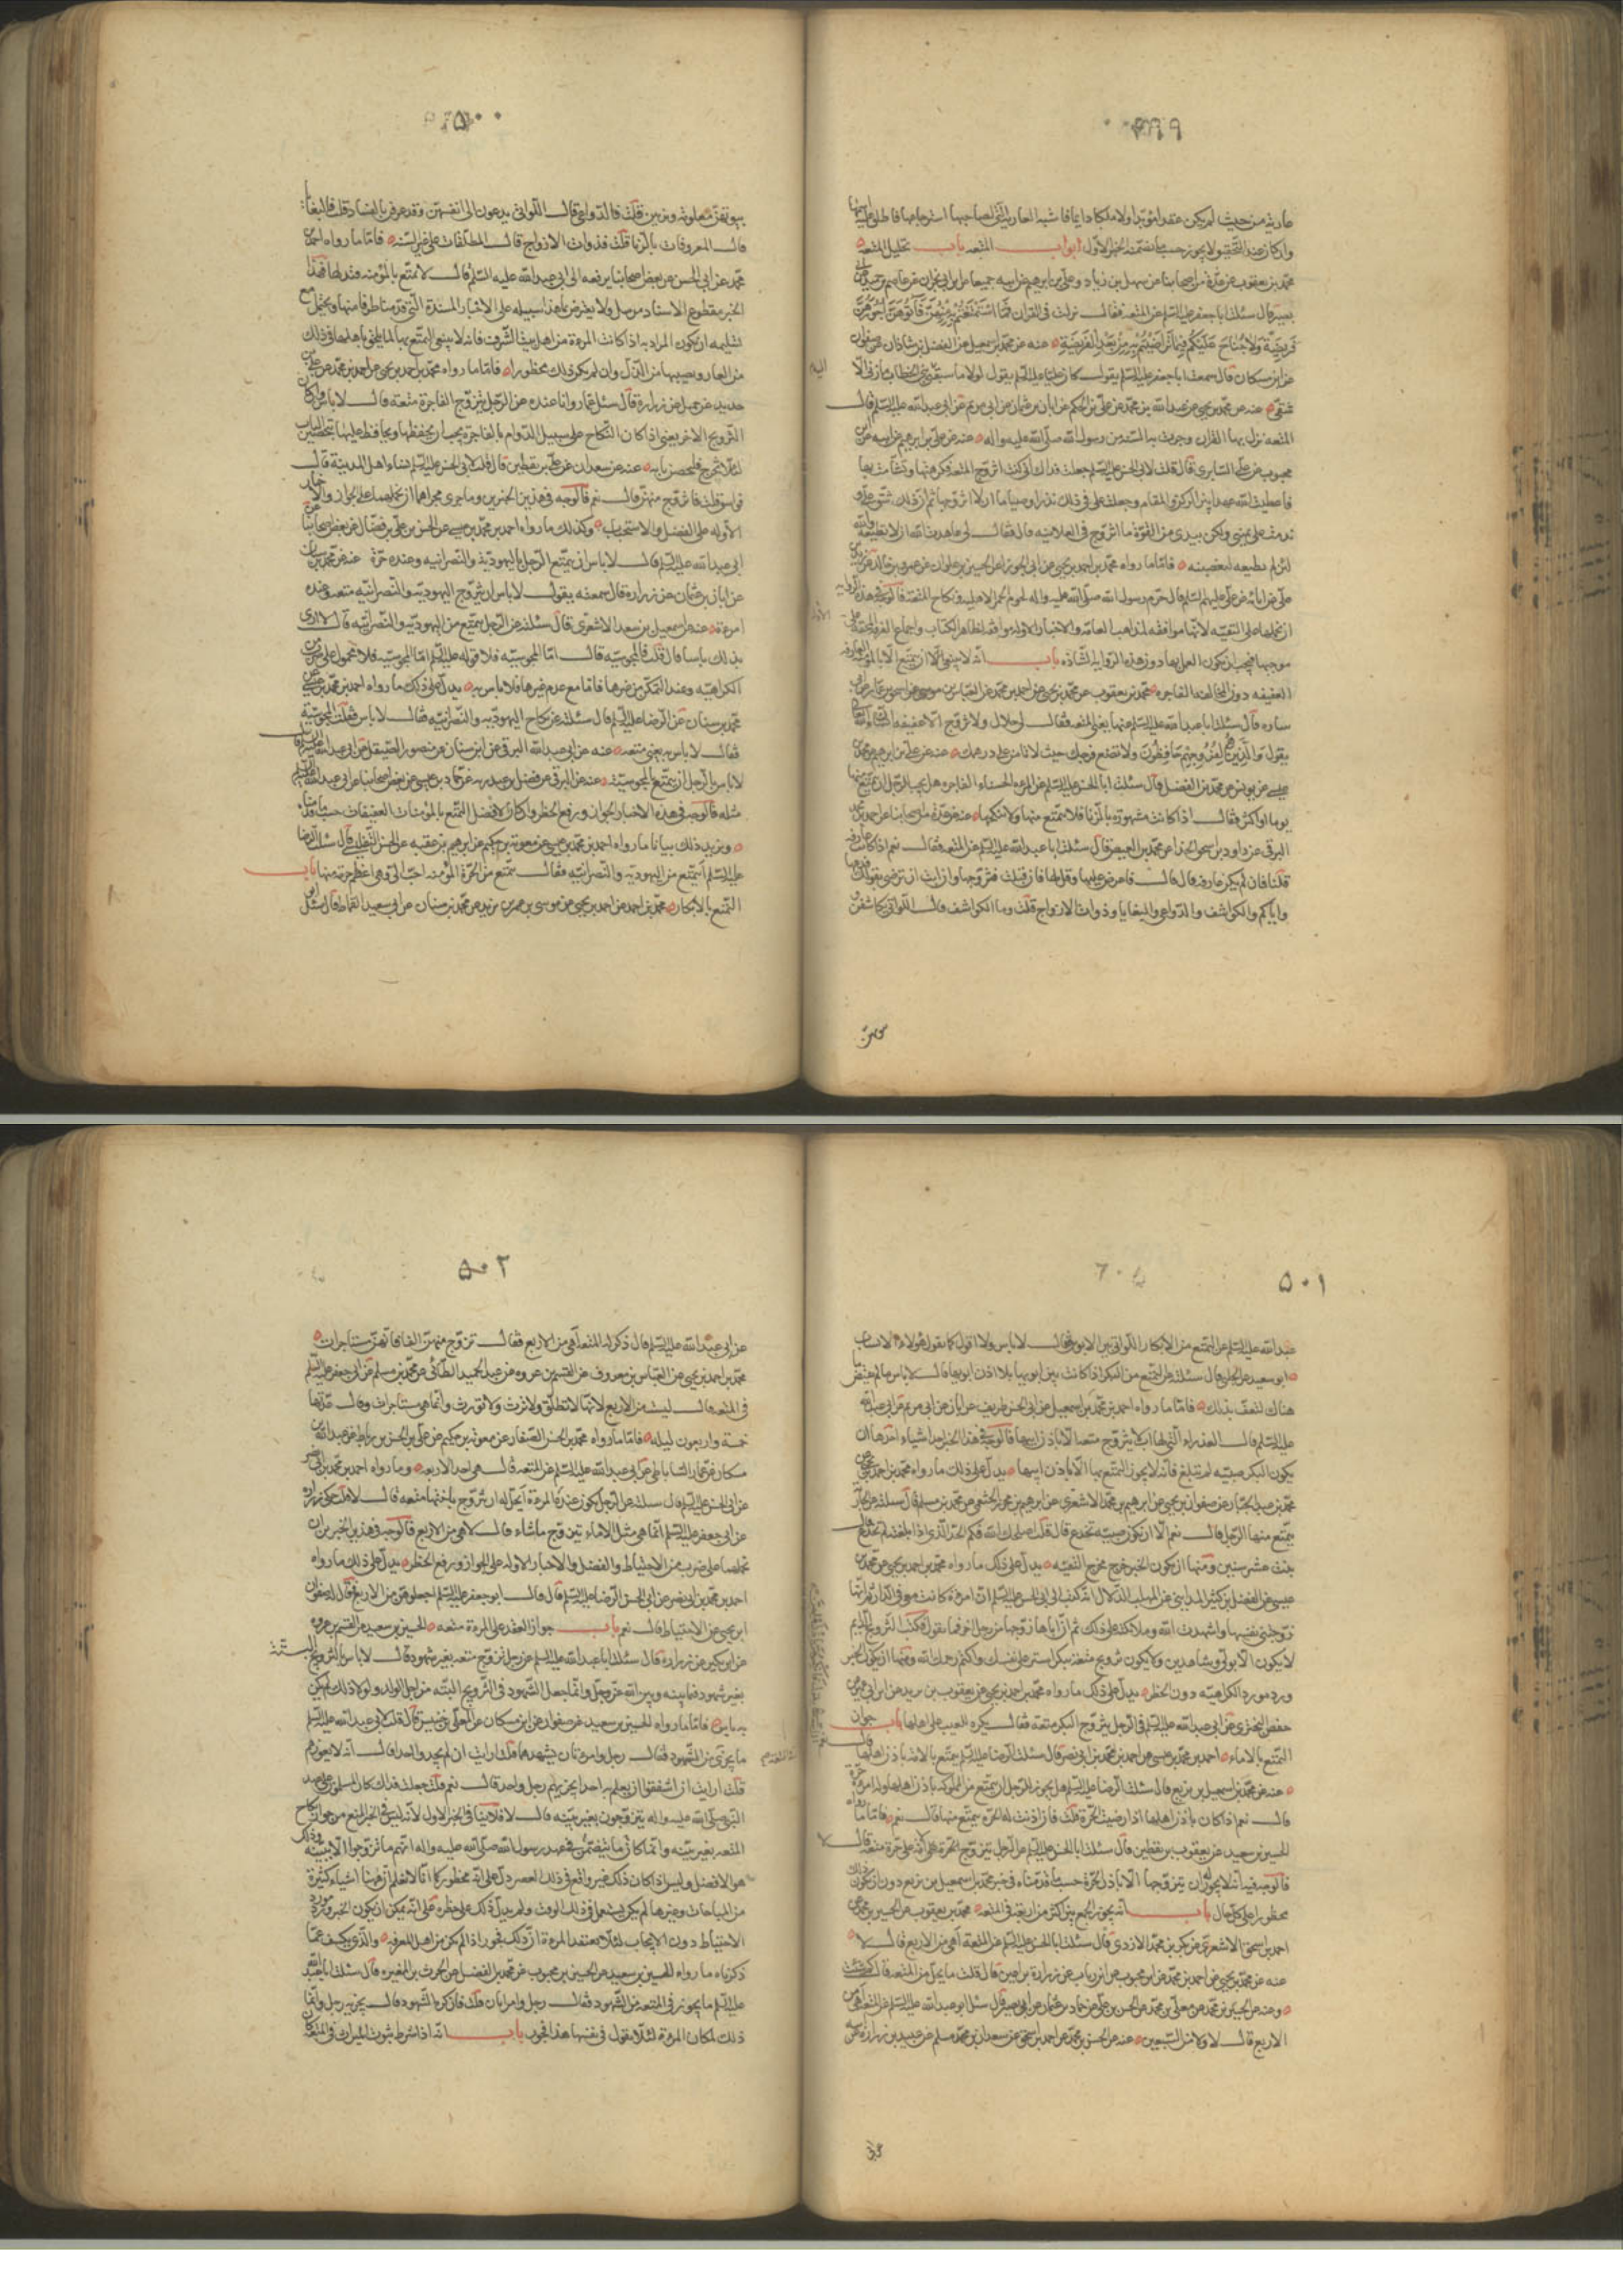 ٤٩٩
عارية من حيث لم يكن عقدا مؤبدا ولا ملكا دائما فاشبه العارية التي لصاحبها استرجاعها فاطلق عليها اسمها
وان كان عند التحقيق لا يجوز حسب ما تضمنه الخبر الاول ابواب المتعه باب تحليل المتعه
محمد بن يعقوب عن عدة من اصحابنا عن سهل بن زياد وعلي بن ابرهيم عن ابيه جميعا عن ابن ابي نجران عن عاصم بن حميد عن ابي
بصير قال سئلت ابا جعفر عليه السلم عن المتعه فقال نزلت في القران فَمَا اسْتَمْتَعْتُمْ بِهِ مِنْهُنَّ فَآتُوهُنَّ اُجُورَهُنَّ
فَرِيضَةً وَلَا جُنَاحَ عَلَيْكُمْ فِيمَا تَرَاضَيْتُمْ بِهِ مِنْ بَعْدِ الْفَرِيضَةِ عنه عن محمد بن اسمعيل عن الفضل بن شاذان عن صفوان
عن ابن مسكان قال سمعت ابا جعفر عليه السلم يقول كان علي عليه السلم يقول لولا ما سبقني بني الخطاب ما زنى الا
شقي عنه عن محمد بن يحيى عن عبد الله بن محمد عن علي بن الحكم عن ابان بن عثمان عن ابي مريم عن ابي عبد الله عليه السلم قال
المتعه نزل بها القران وجرت بها السنه من رسول الله صلى الله عليه واله عنه عن علي بن ابرهيم عن ابيه عن ابن
محبوب عن علي السابري قال قلت لابي الحسن عليه السلم جعلت فداك اني كنت اتزوج المتعه فكرهتها وتشأمت بها
فاعطيت الله عهدا بين الركن والمقام وجعلت علي في ذلك نذرا وصياما ان لا اتزوجها ثم ان ذلك شق علي و
ندمت على يميني ولم يكن بيدي من القوة ما اتزوج في العلانيه قال فقال لي عاهدت الله ان لا تطيعه والله
لئن لم تطعه لتعصينه فاما ما رواه محمد بن احمد بن يحيى عن ابي الجوزا عن الحسين بن علوان عن عمرو بن خالد عن زيد بن
علي عن ابائه عن علي عليهم السلم قال حرم رسول الله صلى الله عليه واله لحوم الحمر الاهليه ونكاح المتعه فالوجه في هذه الروايه
ان نحملها على التقيه لانها موافقه لمذاهب العامه والاخبار الاوله موافقه لظاهر الكتاب واجماع الفرقه المحقه على
موجبها فيجب ان يكون العمل بها دون هذه الروايه الشاذه باب انه لا ينبغي الا ان يتمتع الا بالمؤمنه العارفه
العفيفه دون المخالفه الفاجره محمد بن يعقوب عن محمد بن يحيى عن احمد بن محمد عن العباس بن موسى عن اسحق عن ابي
ساره قال سئلت ابا عبد الله عليه السلم عنها يعني المتعه فقال لي حلال ولا تتزوج الا عفيفه ان الله تعالى
يقول وَالَّذِينَ هُمْ لِفُرُوجِهِمْ حَافِظُونَ ولا تضع فرجك حيث لا تامن على درهمك عنه عن علي بن ابرهيم عن محمد بن
عيسى عن يونس عن محمد بن الفضيل قال سئلت ابا الحسن عليه السلم عن المرءه الحسناء الفاجره هل يجب للرجل ان يتمتع منها
يوما او اكثر فقال اذا كانت مشهورة بالزنا فلا يتمتع منها ولا ينكحها عنه عن عدة من اصحابنا عن احمد بن محمد
البرقي عن داود بن اسحق الحذا عن محمد بن الفيض قال سئلت ابا عبد الله عليه السلم عن المتعه فقال نعم اذا كانت عارفه
قلنا فان لم يكن عارفه قال قال فاعرض عليها وقل لها فان قبلت فتزوجها وان ابت ان ترضى بقولك فدعها
واياكم والكواشف والدواعي والبغايا وذوات الازواج قلت وما الكواشف قال اللواتي يكاشفن
٥٠٠
بيوتهن معلومه ويزنين قلت فالدواعي قال اللواتي يدعون الى انفسهن وقد عرفن بالفساد قلت فالبغايا
قال المعروفات بالزنا قلت فذوات الازواج قال المطلقات على غير السنه فاما ما رواه احمد بن
محمد عن ابي الحسن عن بعض اصحابنا يرفعه الى ابي عبد الله عليه السلم قال لا تمتع بالمؤمنه فتذلها فهذا
الخبر مقطوع الاسناد مرسل ولا يعترض بما هذا سبيله على الاخبار المسندة التي قدمنا طرفا منها ويحتمل مع
تسليمه ان يكون المراد به اذا كانت المرءة من اهل بيت الشرف فانه لا ينبغي التمتع بها لما يلحق باهلها في ذلك
من العار ويصيبها من الذل وان لم يكن ذلك محظورا فاما ما رواه محمد بن احمد بن يحيى عن احمد بن محمد عن علي بن
حديد عن جميل عن زرارة قال سئل عمار وانا عنده عن الرجل يتزوج الفاجرة متعه قال لا باس وان كان
التزويج الاخر يعني اذا كان النكاح على سبيل الدوام بالفاجرة يجب ان يحفظها ويحافظ عليها بتحصين الباب
لئلا تخرج فليحصن بابه عنه عن سعدان عن علي بن يقطين قال قلت لابي الحسن عليه السلم نساء اهل المدينة قال
فواسق قلت فاتزوج منهن قال نعم فالوجه في هذين الخبرين وما جرى مجراهما ان نحملهما على الجواز والاخبار
الاوله على الفضل والاستحباب وكذلك ما رواه احمد بن محمد بن عيسى عن الحسن بن علي بن فضال عن بعض اصحابنا عن
ابي عبد الله عليه السلم قال لا باس ان يتمتع الرجل باليهودية والنصرانيه وعنده حرة عنه عن محمد بن سنان
عن ابان بن عثمان عن زرارة قال سمعته يقول لا باس ان يتزوج اليهوديه والنصرانيه متعه وعنده
امرءة عنه عن اسمعيل بن سعد الاشعري قال سئلته عن الرجل يتمتع من اليهوديه والنصرانيه قال لا ارى
بذلك باسا قال قلت فالمجوسيه قال اما المجوسيه فلا فقوله عليه السلم اما المجوسيه فلا محمول على ضرب من
الكراهيه وعند التمكن من غيرها فاما مع عدم غيرها فلا باس به يدل على ذلك ما رواه احمد بن محمد بن عيسى عن
محمد بن سنان عن الرضا عليه السلم قال سئلته عن نكاح اليهوديه والنصرانيه فقال لا باس فقلت المجوسيه
فقال لا باس به يعني متعه عنه عن ابي عبد الله البرقي عن ابن سنان عن منصور الصيقل عن ابي عبد الله عليه السلم قال
لا باس بالرجل ان يتمتع بالمجوسيه عنه عن البرقي عن فضيل بن عبد ربه عن حماد بن عيسى عن بعض اصحابنا عن ابي عبد الله عليه السلم
مثله فالوجه في هذه الاخبار الجواز ورفع الحظر وان كان الافضل التمتع بالمؤمنات العفيفات حسب ما قدمناه
ويزيد ذلك بيانا ما رواه احمد بن محمد بن عيسى عن معوية بن حكيم عن ابرهيم بن عقبه عن الحسن التفليسي قال سئلت الرضا
عليه السلم ايتمتع من اليهوديه والنصرانيه فقال يتمتع من الحرة المؤمنه احب الي وهي اعظم حرمة منها باب
التمتع بالابكار محمد بن احمد عن احمد بن يحيى عن موسى بن عمر بن يزيد عن محمد بن سنان عن ابي سعيد القماط قال سئل ابو
٥٠١
عبد الله عليه السلم عن التمتع من الابكار اللواتي بين الابوين فقال لا باس ولا اقول كما يقول هؤلاء الاقشاب
ابو سعيد عن الحلبي قال سئلته عن التمتع من البكر اذا كانت بين ابويها بلا اذن ابويها قال لا باس ما لم يفتض ما
هناك لتعف بذلك فاما ما رواه احمد بن محمد بن اسمعيل عن ابي الحسن ظريف عن ابان عن ابي مريم عن ابي عبد الله
عليه السلم قال العذراء التي لها اب لا يتزوج متعه الا باذن ابيها فالوجه في هذا الخبر احد اشياء احدها ان
يكون البكر صبيه لم تبلغ فانه لا يجوز التمتع بها الا باذن ابيها يدل على ذلك ما رواه محمد بن احمد بن يحيى عن
محمد بن عبد الجبار عن صفوان بن يحيى عن ابرهيم بن محمد الاشعري عن ابرهيم بن محرز الخثعمي عن محمد بن مسلم قال سئلته عن الجاريه
يتمتع منها الرجل قال نعم الا ان تكون صبيه تخدع قال قلت اصلحك الله فكم الحد الذي اذا بلغته لم تخدع قال
بنت عشر سنين ومنها ان يكون الخبر خرج مخرج التقيه يدل على ذلك ما رواه محمد بن احمد بن يحيى عن محمد بن
عيسى عن الفضل بن كثير المدايني عن المهلب الدلال انه كتب الى ابي الحسن عليه السلم ان امرءة كانت معي في الدار ثم انها
زوجتني نفسها واشهدت الله وملائكته على ذلك ثم ان اباها زوجها من رجل اخر فما تقول فكتب التزويج الدايم
لا يكون الا بولي وشاهدين ولا يكون تزويج متعه ببكر استر على نفسك واكتم رحمك الله ومنها ان يكون الخبر
ورد مورد الكراهيه دون الحظر يدل على ذلك ما رواه محمد بن احمد بن يحيى عن يعقوب بن يزيد عن ابن ابي عمير عن
حفص بن البختري عن ابي عبد الله عليه السلم في الرجل يتزوج البكر متعة فقال يكره للعيب على اهلها باب جواز
التمتع بالاماء احمد بن محمد بن عيسى عن احمد بن محمد بن ابي نصر قال سئلت الرضا عليه السلم يتمتع بالامة باذن اهلها قال
عنه عن محمد بن اسمعيل بن بزيع قال سئلت الرضا عليه السلم هل يجوز للرجل ان يتمتع من المملوكه باذن اهلها وله امرءة حرة
قال نعم اذا كان باذن اهلها اذا رضيت الحرة قلت فان اذنت له الحرة يتمتع منها قال نعم فاما ما رواه
الحسين بن سعيد عن يعقوب بن يقطين قال سئلت ابا الحسن عليه السلم عن الرجل يتزوج الامة على الحرة متعة قال لا
فالوجه فيه انه لا يجوز له ان يتزوجها الا باذن الحرة حسب ما قدمناه في خبر محمد بن اسمعيل بن بزيع دون ان يكون ذلك
محظورا على كل حال باب انه يجوز الجمع بين اكثر من اربع في المتعه محمد بن يعقوب عن الحسين بن محمد عن
احمد بن اسحق الاشعري عن بكر بن محمد الازدي قال سئلت ابا الحسن عليه السلم عن المتعة اهي من الاربع قال لا
عنه عن محمد بن يحيى عن احمد بن محمد عن ابن محبوب عن ابن رئاب عن زرارة بن اعين قال قلت ما يحل من المتعه قال كم شئت
وعنه عن الحسين بن محمد عن معلى بن محمد عن الحسن بن علي عن حماد بن عثمان عن ابي بصير قال سئل ابو عبد الله عليه السلم عن المتعه اهي من
الاربع قال لا ولا من السبعين عنه عن الحسن بن محمد عن احمد بن اسحق عن سعدان بن مسلم عن عبيد بن زرارة عن ابيه
٥٠٢
عن ابي عبد الله عليه السلم قال ذكر له المتعه اهي من الاربع فقال تزوج منهن الفا فانهن مستاجرات
محمد بن احمد بن يحيى عن العباس بن معروف عن القسم بن عروه عن عبد الحميد الطائي عن محمد بن مسلم عن ابي جعفر عليه السلم
في المتعه قال ليست من الاربع لانها لا تطلق ولا ترث ولا تورث وانما هي مستاجرة وقال عدتها
خمسة واربعون ليله فاما ما رواه محمد بن الحسن الصفار عن معوية بن حكيم عن علي بن الحسن بن رباط عن عبد الله بن
مسكان عن عمار الساباطي عن ابي عبد الله عليه السلم عن المتعه قال هي احد الاربعه وما رواه احمد بن محمد بن ابي نصر
عن ابي الحسن عليه السلم قال سئلته عن الرجل يكون عنده المرءة ايحل له ان يتزوج باختها متعه قال لا قلت حكى زراره
عن ابي جعفر عليه السلم انما هي مثل الاماء يتزوج ما شاء قال لا هي من الاربع فالوجه في هذين الخبرين ان
نحملهما على ضرب من الاحتياط والفضل والاخبار الاوله على الجواز ورفع الحظر يدل على ذلك ما رواه
احمد بن محمد بن ابي نصر عن ابي الحسن الرضا عليه السلم قال قال ابو جعفر عليه السلم اجعلوهن من الاربع فقال له صفوان
ابن يحيى عن الاحتياط قال نعم باب جواز العقد على المرءة متعه الحسين بن سعيد عن القسم بن عروه
عن ابن بكير عن زراره قال سئلت ابا عبد الله عليه السلم عن رجل تزوج متعه بغير شهود قال لا باس بالتزويج البتة
بغير شهود فيما بينه وبين الله عز وجل وانما جعل الشهود في التزويج البته من اجل الولد ولولا ذلك لم يكن
به باس فاما ما رواه الحسين بن سعيد عن صفوان عن ابن مسكان عن المعلى بن خنيس قال قلت لابي عبد الله عليه السلم
ما يجزئ من الشهود فقال رجل وامرءتان يشهدهما قلت ارايت ان لم يجدوا احدا قال انه لا يعوزهم
قلت ارايت ان اشفقوا ان يعلم به احد ايجزيهم رجل واحد قال نعم قلت جعلت فداك كان المسلمون على عهد
النبي صلى الله عليه واله يتزوجون بغير بينه قال لا فلا ينافي الخبر الاول لانه ليس في الخبر المنع من جواز نكاح
المتعه بغير بينه وانما كان ما يتضمن في عهد رسول الله صلى الله عليه واله انهم ما تزوجوا الا ببينه وذلك
هو الافضل وليس اذا كان ذلك غير واقع في ذلك العصر دل على انه محظور كما انا لا نعلم ان ههنا اشياء كثيرة
من المباحات وغيرها لم يكن يستعمل في ذلك الوقت ولم يدل ذلك على حظره على انه يمكن ان يكون الخبر ورد مورد
الاحتياط دون الايجاب لئلا تعتقد المرءة ان ذلك فجور اذا لم يكن من اهل المعرفه والذي يكشف عما
ذكرناه ما رواه الحسين بن سعيد عن الحسن بن محبوب عن محمد بن الفضيل عن الحرث بن المغيره قال سئلت ابا عبد الله
عليه السلم ما يجوز في المتعه من الشهود فقال رجل وامراتان قلت فان كرهوا الشهود قال يجزيه رجل وانما
ذلك لمكان المرءة لئلا تقول في نفسها هذا فجور باب انه اذا شرط ثبوت الميراث في المتعه كان